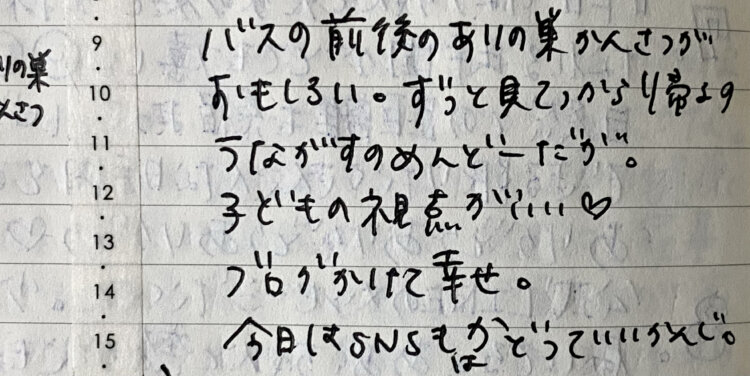 9 バスの前後のありの巣かんさつが
りの巣
10 おもしろい。ずっと見てっから帰るの
んさつ
11 うながすのめんどーだが。
12 子どもの視点がいい♡
13
14 ブログかけて幸せ。
15 今日はSNSもはかどっていいかんじ。